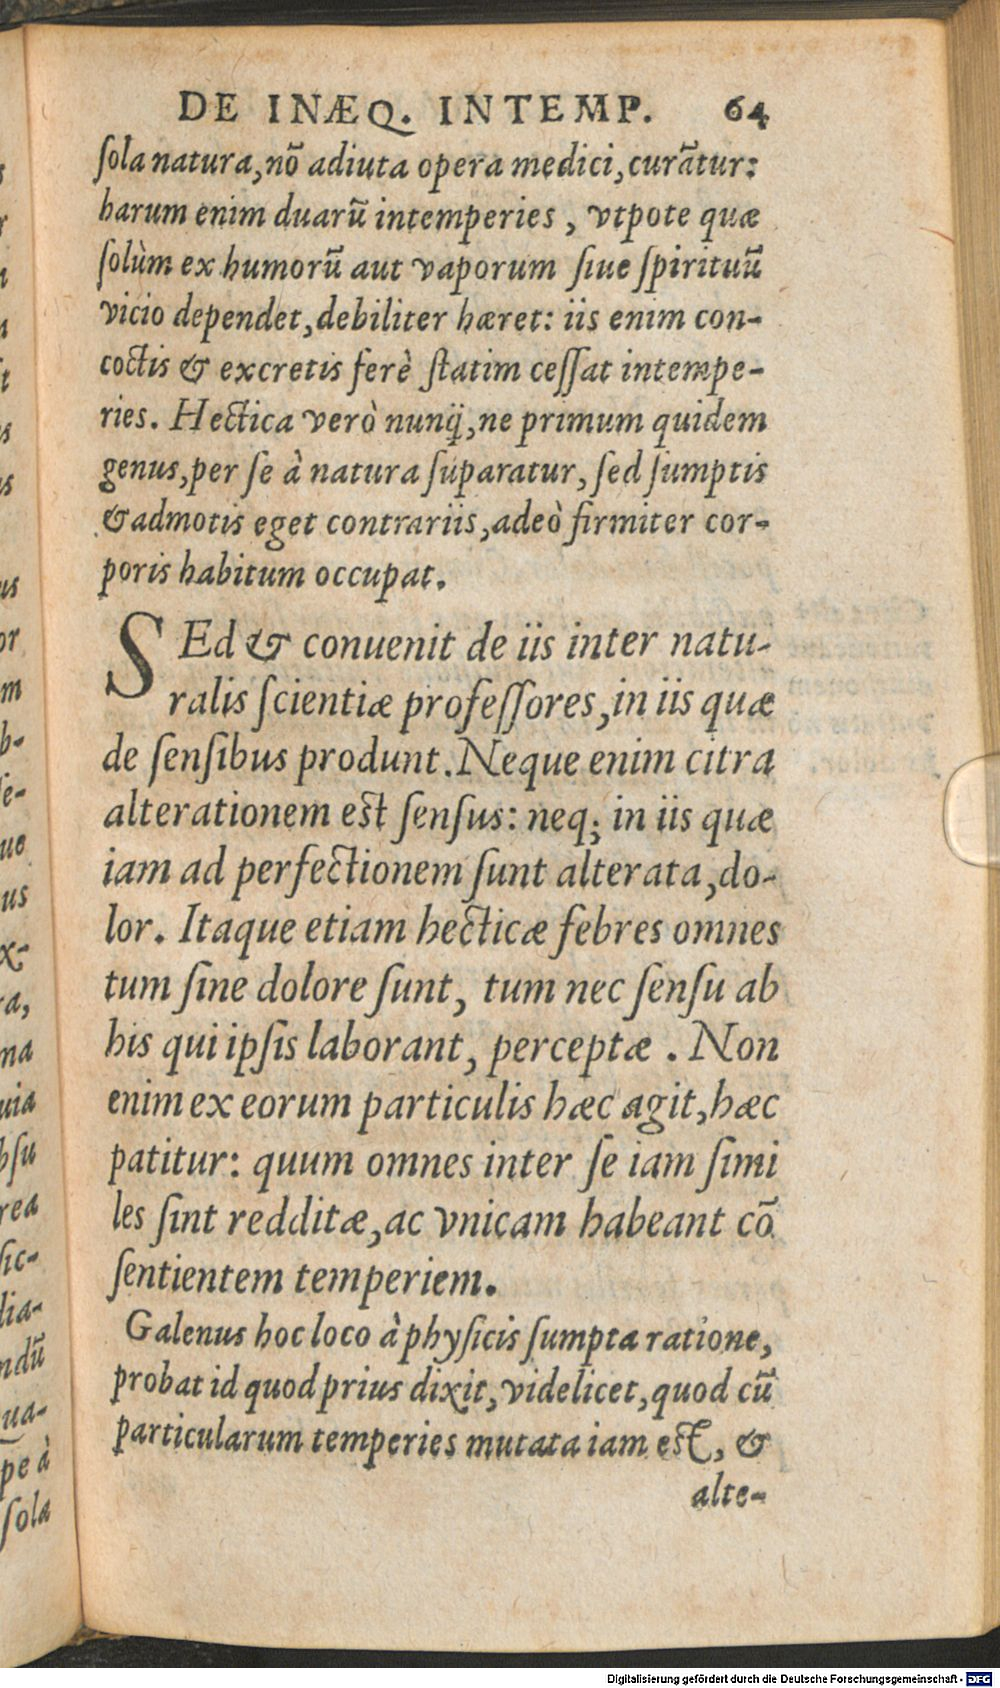 DE INÆQ. INTEMP. 64
ſola natura,nō adiuta opera medici,curātur:
harum enim duarū intemperies , vtpote quæ
ſolùm ex humorū aut vaporum ſiue ſpirituū
vicio dependet,debiliter hæret: iis enim con-
coctis & excretis ferè ſtatim ceſſat intempe-
ries. Hectica verò nunq̃,ne primum quidem
genus,per ſe à natura ſuparatur, ſed ſumptis
& admotis eget contrariis,adeò firmiter cor-
poris habitum occupat.
SEd & conuenit de iis inter natu-
ralis ſcientiæ profeſſores,in iis quæ
de ſenſibus produnt.Neque enim citra
alterationem eſt ſenſus: neq; in iis quæ
iam ad perfectionem ſunt alterata,do-
lor. Itaque etiam hecticæ febres omnes
tum ſine dolore ſunt, tum nec ſenſu ab
his qui ipſis laborant, perceptæ . Non
enim ex eorum particulis hæc agit,hæc
patitur: quum omnes inter ſe iam ſimi
les ſint redditæ,ac vnicam habeant cō
ſentientem temperiem.
Galenus hoc loco à phyſicis ſumpta ratione,
probat id quod prius dixit,videlicet,quod cū
particularum temperies mutata iam eſt, &
alte-
us
or
m
b-
ſe-
ue
us
x-
ra,
na
uia
bſu
rea
ſic-
dia-
ndū
ua-
pe à
ſola
Digitalisierung gefördert durch die Deutsche Forschungsgemeinschaft - DFG